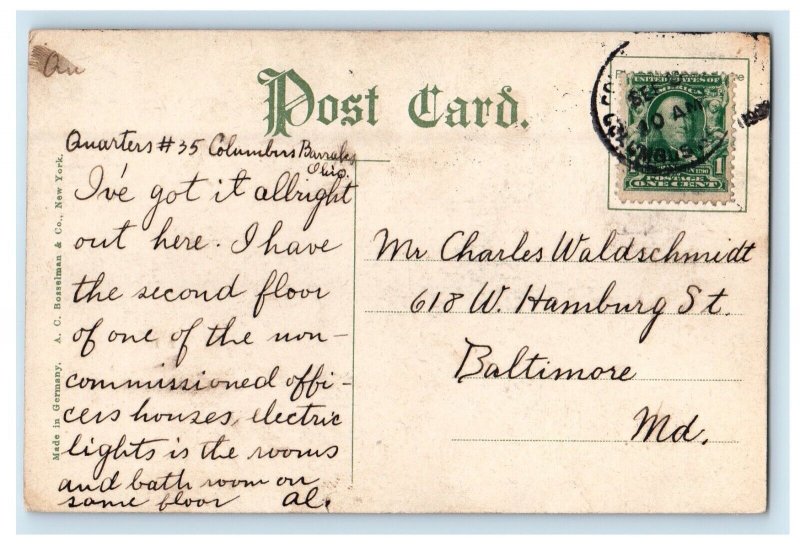 Post Card.
Quarters #35 Columbus Barraks
Ohio.
I've got it allright
out here. I have
the second floor
of one of the non-
commissioned offi-
cers houses, electric
lights is the rooms
and bath room on
same floor al.
Mr Charles Waldschmidt
618 W. Hamburg St.
Baltimore
Md.
Made in Germany. A. C. Bosselman & Co., New York.
UNITED STATES OF
AMERICA
1
POSTAGE
ONE CENT
10 AM